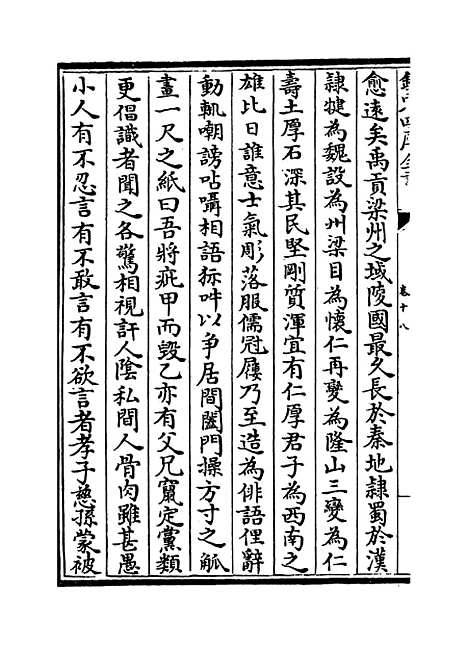 愈逺矣禹貢梁州之域陵國最久長於秦地隷蜀於漢
隷犍為魏設為州梁目為懐仁再變為隆山三變為仁
壽土厚石深其民堅剛質渾宜有仁厚君子為西南之
雄比日誰意士氣彫落服儒冠屨乃至造為俳語俚辭
動輒嘲謗呫囁相語狋吽以爭居間闔門操方寸之觚
畫一尺之紙曰吾將疵甲而毀乙亦有父兄竄定黨類
更倡識者聞之各驚相視訐人陰私間人骨肉雖甚愚
小人有不忍言有不敢言有不欲言者孝子慈孫蒙被
卷十八